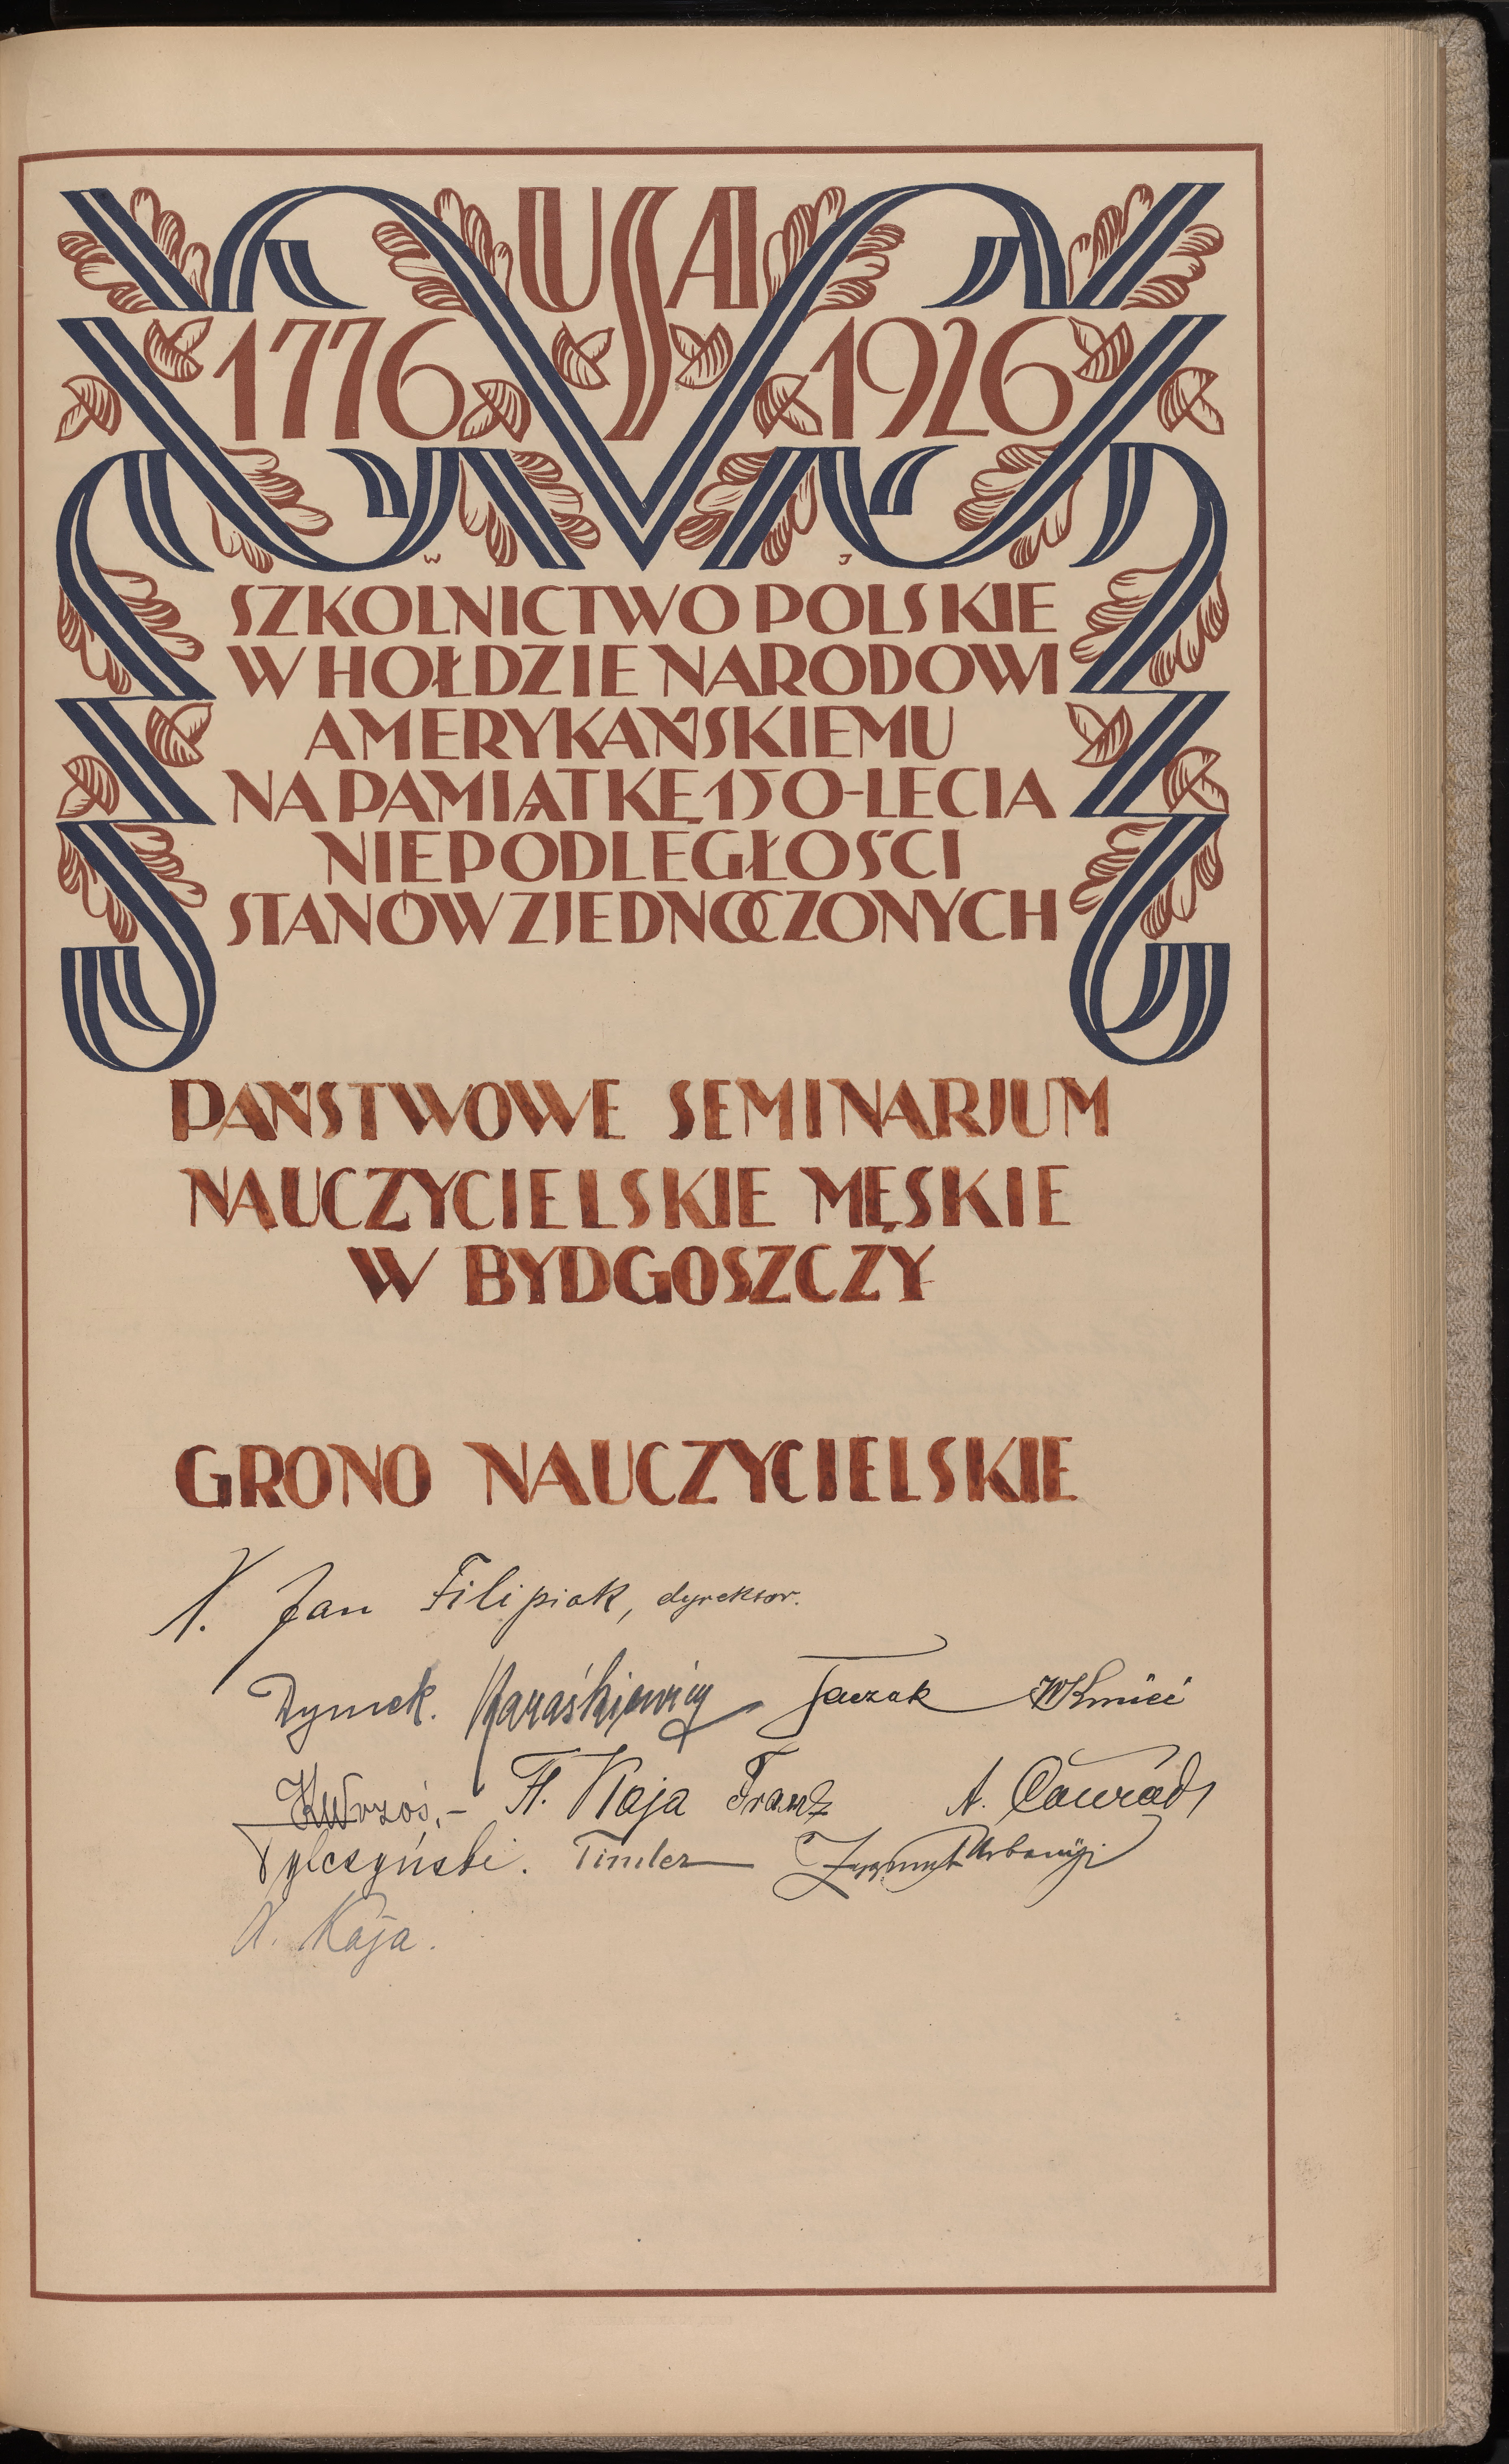 USA
1776 1926
W J
SZKOLNICTWO POLSKIE
W HOŁDZIE NARODOWI
AMERYKAŃSKIEMU
NA PAMIĄTKĘ 150-LECIA
NIEPODLEGŁOŚCI
STANÓW ZJEDNOCZONYCH
PAŃSTWOWE SEMINARJUM
NAUCZYCIELSKIE MĘSKIE
W BYDGOSZCZY
GRONO NAUCZYCIELSKIE
X. Jan Filipiak, dyrektor.
Dymek. Karaśkiewicz Taczak WKmieć
F. Kaja Franz A. Conrad
Tylczyński. Timler Zygmunt Urbanyi
A. Kaja.